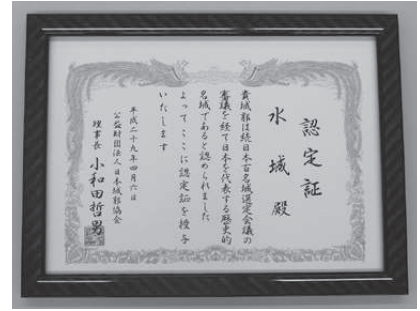 認定証
水城殿
貴城郭は続日本百名城選定会議の
審議を経て日本を代表する歴史的
名城であると認められました
よってここに認定証を授与
いたします
平成二十九年四月六日
公益財団法人日本城郭協会
理事長 小和田哲男